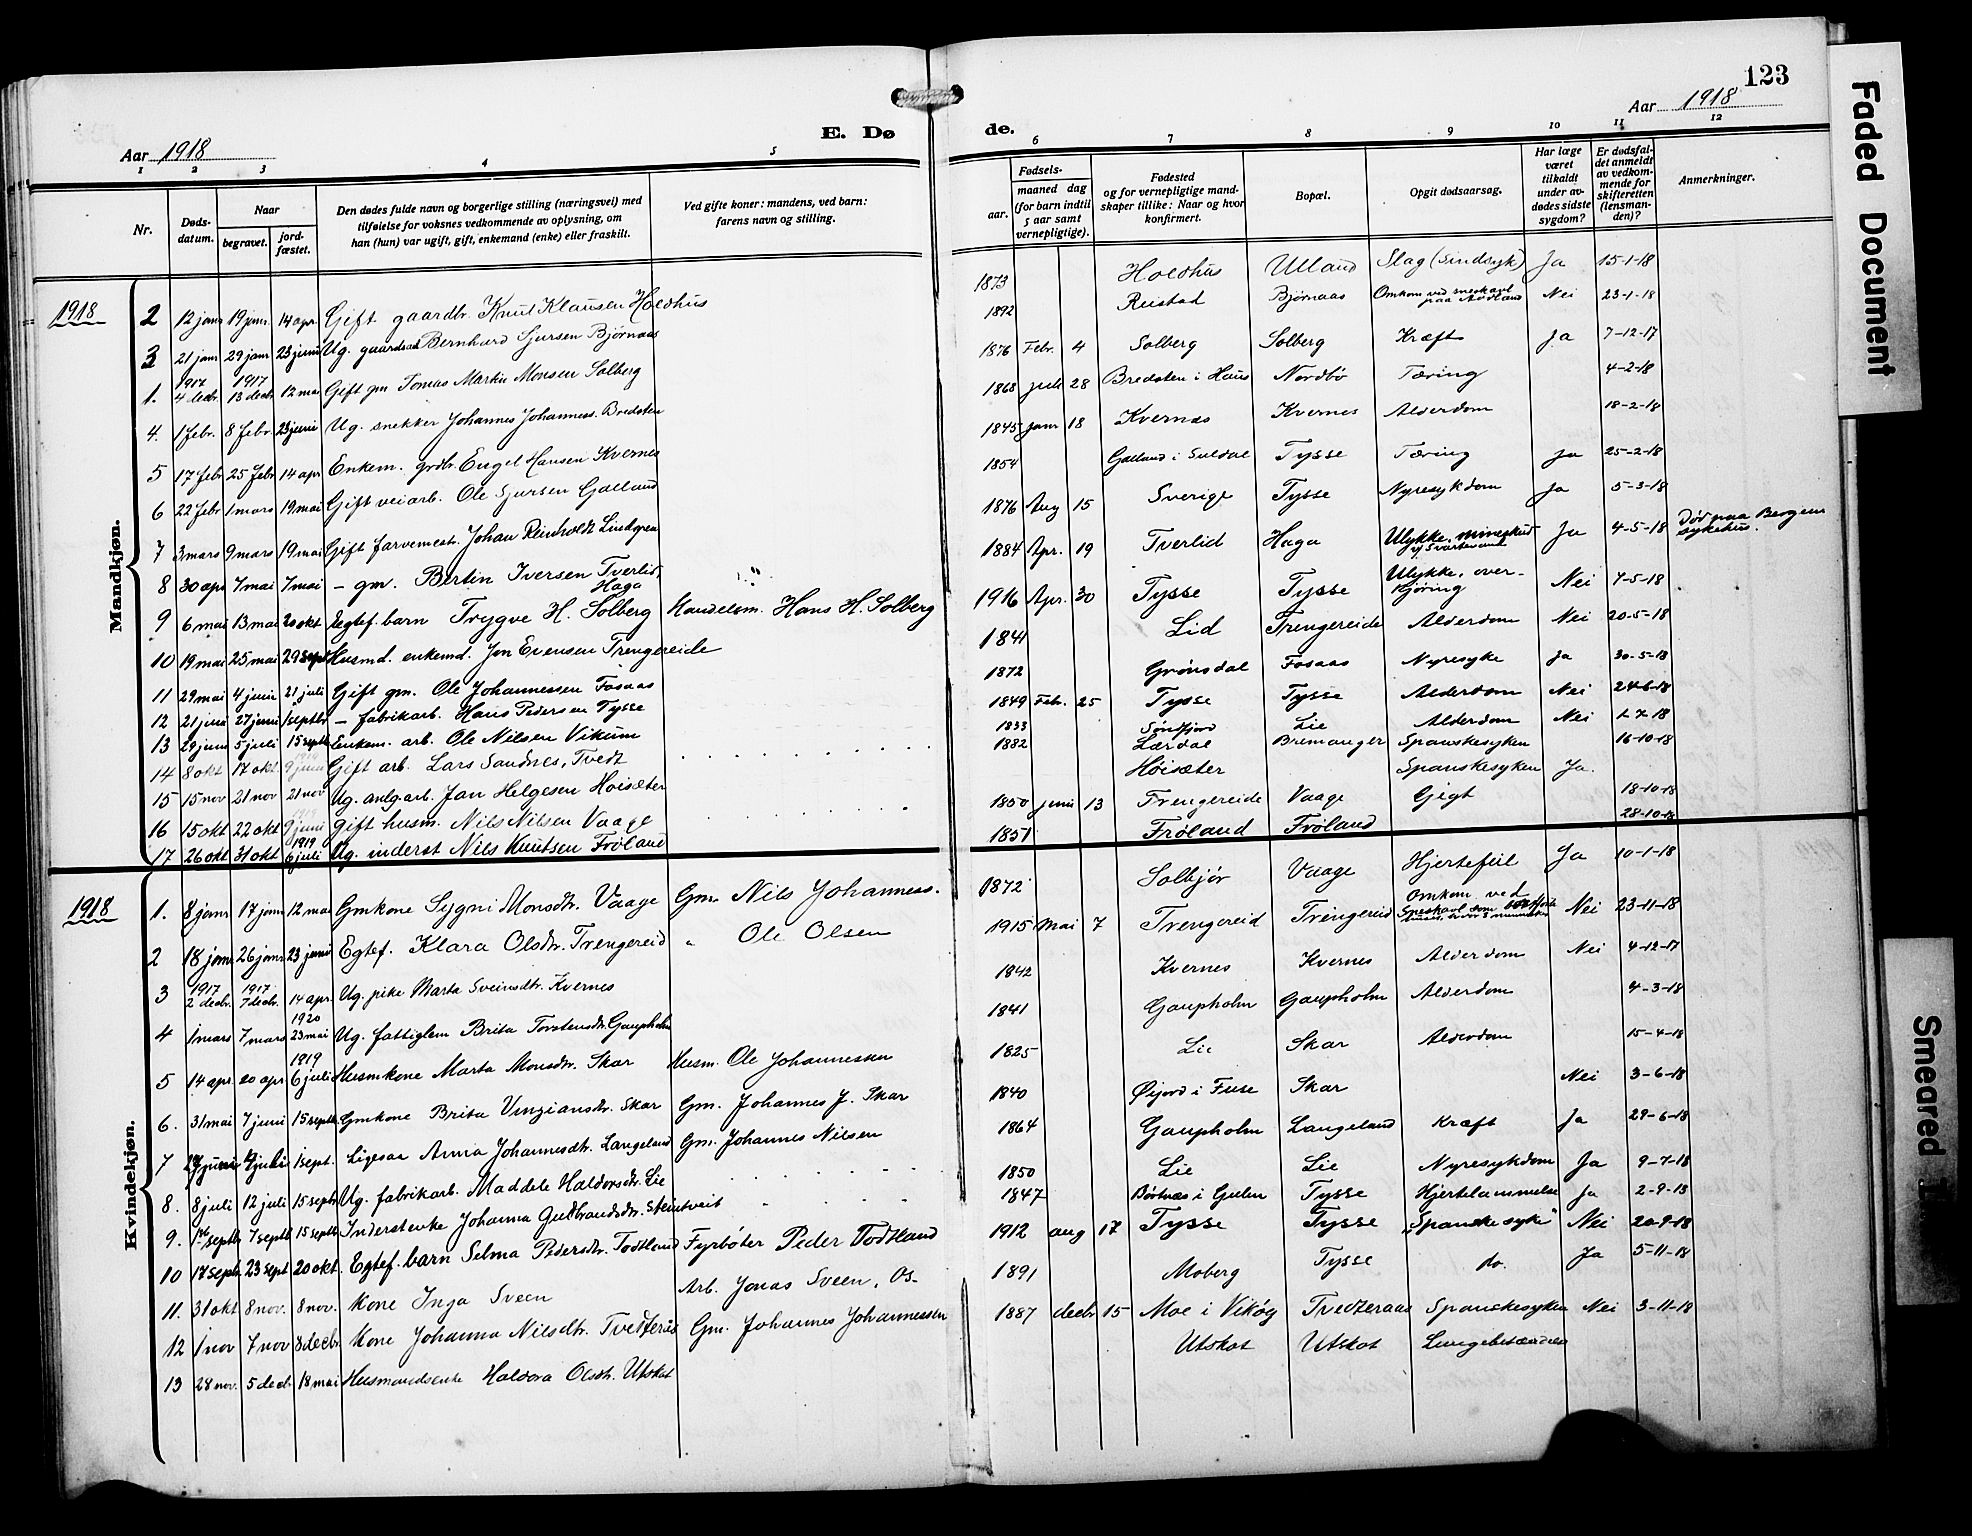 123
Aar 1918
E. Dø
de.
Aar 1918
1 2 3 4 5
6 7 8 9 10 11 12
Nr.
Døds-
datum.
Naar
begravet.
jord-
fæstet.
Den dødes fulde navn og borgerlige stilling (næringsvei) med
tilføielse for voksnes vedkommende av oplysning, om
han (hun) var ugift, gift, enkemand (enke) eller fraskilt.
Ved gifte koner: mandens, ved barn:
farens navn og stilling.
Fødsels-
aar.
maaned dag
(for barn indtil
5 aar samt
vernepligtige).
Fødested
og for vernepligtige mand-
skaper tillike: Naar og hvor
konfirmert.
Bopæl.
Opgit dødsaarsag.
Har læge
været
tilkaldt
under av-
dødes sidste
sygdom?
Er dødsfal-
det anmeldt
av vedkom-
mende for
skifteretten
(lensman-
den)?
Anmerkninger.
1918
Mandkjøn.
2 12 janr 19 janr 14 apr. Gift gaardbr. Knut Klausen Holdhus 1873 Holdhus Ulland Slag (sindsyk) Ja 15-1-18
3 21 janr 29 janr 23 juni Ug. Bernhard Sjursen Bjørnaas 1892 Reistad Bjørnaas Omkom ved sneskavl paa Nei 23-1-18
1. 1917 4 decbr. 1917 13 decbr 12 mai Gift gm Tomas Martin Monsen Solberg 1876 Febr. 4 Solberg Solberg Kræft Ja 7-12-17
4. 1 febr. 8 febr. 23 juni Ug. snekker Johannes Johanness. Bredsten 1868 juli 28 Bredsten i Haus Nordbø Tæring 4-2-18
5 17 febr 25 febr 14 apr Enkem. grdbr. Engel Hansen Kvernes 1845 janr 18 Kvernæs Kvernes Alderdom 18-2-18
6 22 febr 1 mars 19 mai Gift veiarb. Ole Sjursen Galland 1854 Galland i Suldal Tysse Tæring Ja 25-2-18
7 3 mars 9 mars 19 mai Gift farvemest. Johan Reinholdt Lindgren 1876 Aug 15 Sverige Tysse Nyresykdom Ja 5-3-18
8 30 apr 7 mai 7 mai - gm. Bertin Iversen Tverlid, Haga " 1884 Apr. 19 Tverlid Haga Ulykke, mineskud Ja 4-5-18 Død paa Bergens sykehus.
9 6 mai 13 mai 20 okt Egtef. barn Trygve H. Solberg Handelsm. Hans H. Solberg 1916 Apr. 30 Tysse Tysse Ulykke, over-kjøring Nei 7-5-18
10 19 mai 25 mai 29 sept Husmd. enkemd. Jon Evensen Trengereide 1841 Lid Trengereide Alderdom Nei 20-5-18
11 29 mai 4 juni 21 juli Gift gm. Ole Johannessen Fosaas 1872 Grønsdal Fosaas Nyresyke Ja 30-5-18
12 21 juni 27 juni 1 septbr - fabrikarb. Hans Pedersen Tysse 1849 Febr. 25 Tysse Tysse Alderdom Nei 24-6-18
13 29 juni 5 juli 15 septb Enkem. arb. Ole Nilsen Vikum 1833 Søndfjord Lie Alderdom Nei 1-7-18
14 8 okt 17 okt 1919 9 juni Gift arb. Lars Sandnes, Tvedt 1882 Lærdal Bremanger Spanskesyken 16-10-18
15 15 nov 21 nov 21 nov Ug. anlg.arb. Jan Helgesen Høisæter Høisæter Spanskesyken Ja.
16 15 okt 22 okt 9 juni Gift husm. Nils Nilsen Vaage 1850 juni 13 Trengereide Vaage Gigt 18-10-18
17 26 okt 31 okt 1919 6 juli Ug. inderst Nils Knutsen Frøland 1851 Frøland Frøland 28-10-18
1918
Kvindekjøn.
1. 8 janr 17 janr 12 mai Gmkone Sygni Monsdtr. Vaage Gm. Nils Johanness. 1872 Solbjør Vaage Hjertefeil Ja 10-1-18
2 18 janr 26 janr 23 juni Egtef. Klara Olsdtr. Trengereid " Ole Olsen 1915 Mai 7 Trengereid Trengereid Omkom ved Sneskavl som Nei 23-11-18
3 1917 2 decbr. 1917 7 decbr. 14 apr. Ug. pike Marta Sveinsdtr. Kvernes 1842 Kvernes Kvernes Alderdom Nei 4-12-17
4 1 mars 7 mars 1920 23 mai Ug. fattiglem Brita Torstensdtr. Gaupholm 1841 Gaupholm Gaupholm Alderdom 4-3-18
5 14 apr. 20 apr 1919 6 juli Husmkone Marta Monsdtr. Skar Husm. Ole Johannessen 1825 Lie Skar Alderdom 15-4-18
6. 31 mai 7 juni 15 septb. Gmkone Brita Vingiansdtr. Skar Gm. Johannes J. Skar 1840 Øijord i Fuse Skar Nei 3-6-18
7 27 juni 4 juli 1 sept. Ligesaa Anna Johannesdtr. Langeland Gm. Johannes Nilsen 1864 Gaupholm Langeland Kræft Ja 29-6-18
8. 8 juli 12 juli 15 septb Ug. fabrikarb. Maddele Haldorsdtr. Lie 1850 Lie Lie Nyresykdom Ja 9-7-18
9. 1ste septb 7 septb 15 septb Inderstenke Johanna Gudbrandsdtr. Steintveit 1847 Børtnæs i Gulen Tysse Hjertelammelse Ja 2-9-18
10 17 septb. 23 sept 20 okt. Egtef. barn Selma Pedersdtr. Todtland Fyrbøter Peder Todtland 1912 aug 17 Tysse Tysse „Spanske syke" Nei 20-9-18
11. 31 okt 8 nov. 8 nov. Kone Inga Sveen Arb. Jonas Sveen, Os- 1891 Moberg Tysse do. Ja 5-11-18
12 1 nov 7 nov 8 decbr. Kone Johanna Nilsdtr. Tvedteraas Gm. Johannes Johannessen 1887 decbr 15 Moe i Vikøy Tvedteraas Spanskesyken Nei 3-11-18
13 28 nov. 5 decb. 18 mai Husmandsenke Haldora Olsdtr. Utskot Utskot Utskot Lungebetændelse
Faded Document
Smeared